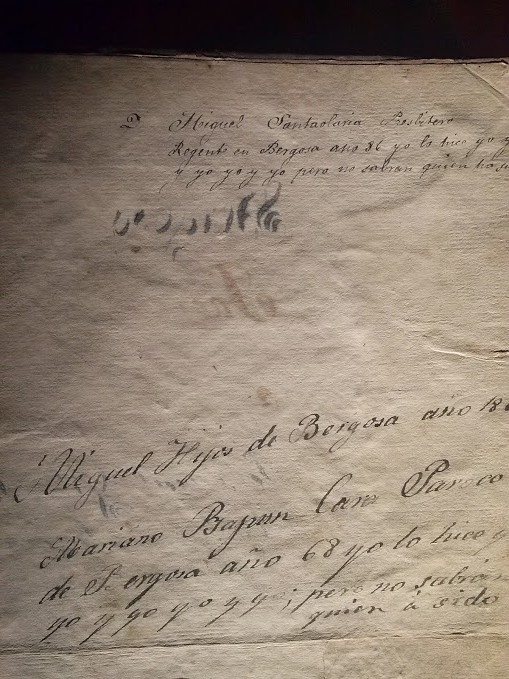 D Miguel Santaolaria Presbitero
Regente en Bergosa año 86 yo lo hico yo y
y yo yo y yo pero no sabran quien ha si
Miguel Hijos de Bergosa año 18
Mariano Cara Paroco
de Bergosa año 68 yo lo hico y
yo y yo yo y yo; pero no sabrán
quien á sido